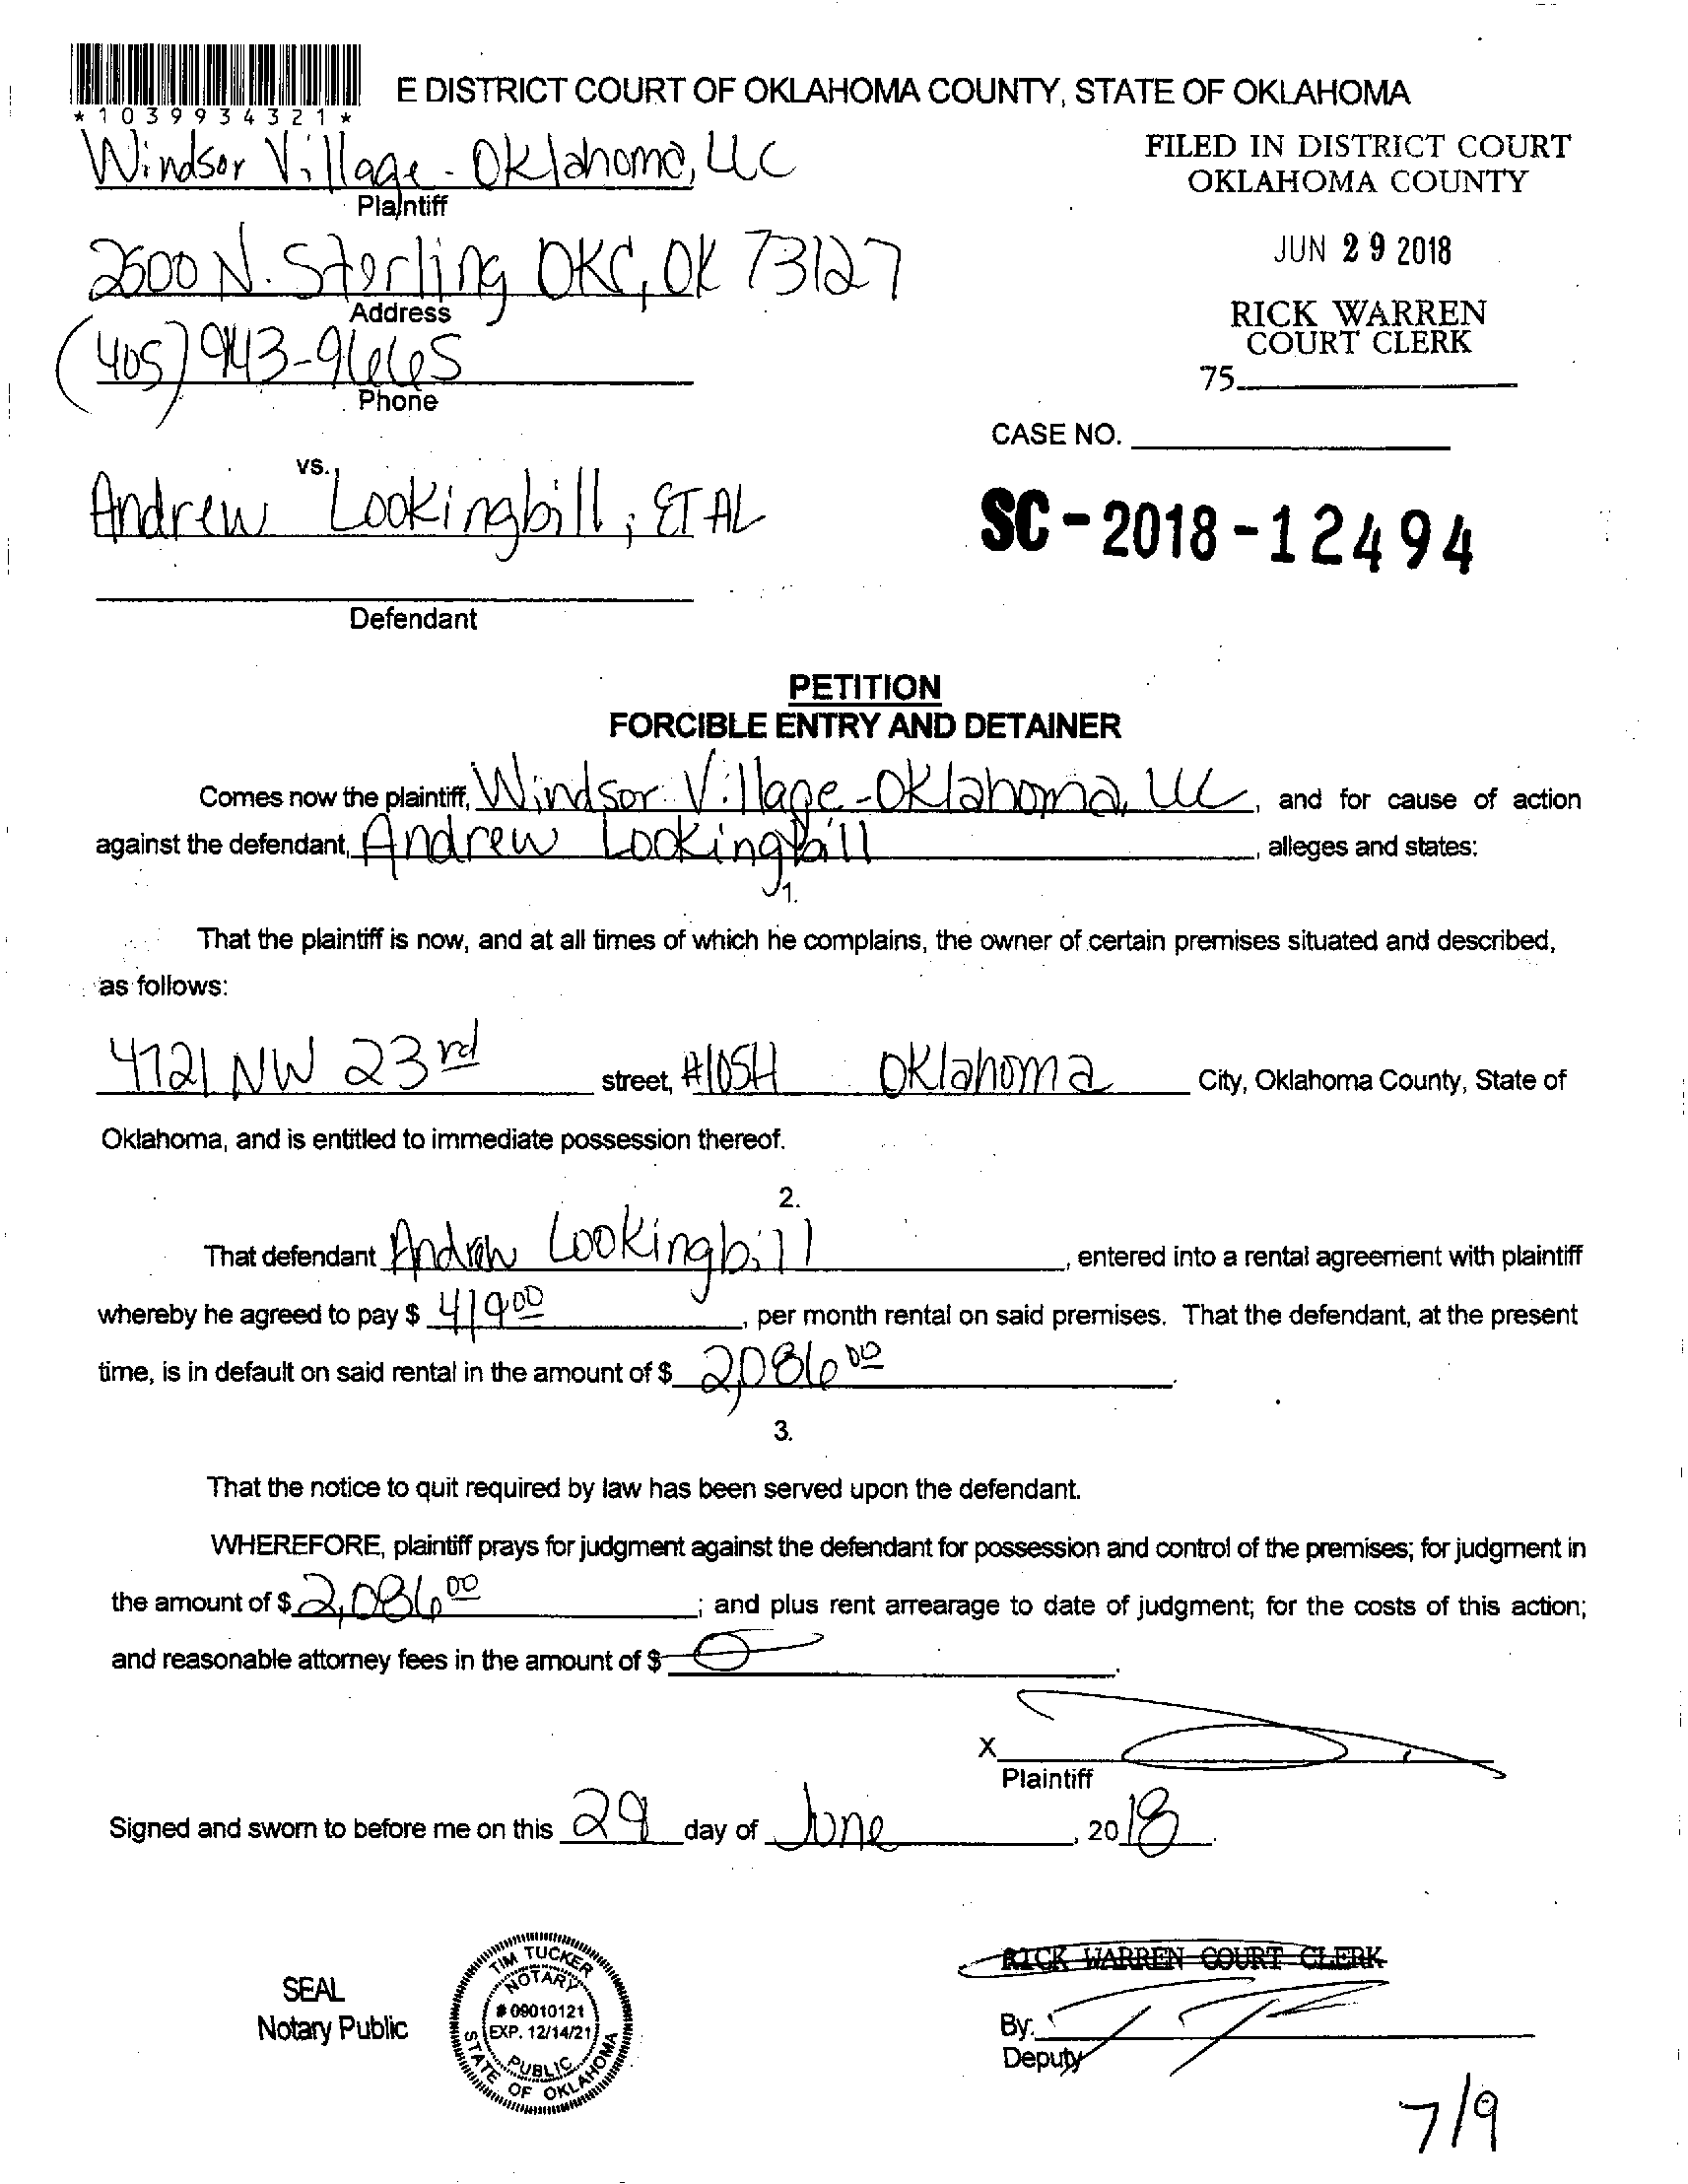 *1039934321*
E DISTRICT COURT OF OKLAHOMA COUNTY, STATE OF OKLAHOMA
Windsor Village - Oklahoma, LLC
Plaintiff
FILED IN DISTRICT COURT
OKLAHOMA COUNTY
2600 N. Sterling OKC, OK 73127
Address
JUN 29 2018
RICK WARREN
COURT CLERK
(405) 943-9665
Phone
75
CASE NO.
vs.
Andrew Lookingbill, ET AL
SC-2018-12494
Defendant
PETITION
FORCIBLE ENTRY AND DETAINER
Comes now the plaintiff, Windsor Village-Oklahoma, LLC, and for cause of action
against the defendant, Andrew Lookingbill, alleges and states:
1.
That the plaintiff is now, and at all times of which he complains, the owner of certain premises situated and described,
as follows:
4721 NW 23rd street, #105H Oklahoma City, Oklahoma County, State of
Oklahoma, and is entitled to immediate possession thereof.
2.
That defendant Andrew Lookingbill, entered into a rental agreement with plaintiff
whereby he agreed to pay $ 419 00, per month rental on said premises. That the defendant, at the present
time, is in default on said rental in the amount of $ 2,086 00.
3.
That the notice to quit required by law has been served upon the defendant.
WHEREFORE, plaintiff prays for judgment against the defendant for possession and control of the premises; for judgment in
the amount of $ 2,086 00; and plus rent arrearage to date of judgment; for the costs of this action;
and reasonable attorney fees in the amount of $ 0.
X
Plaintiff
Signed and sworn to before me on this 29 day of June, 2018.
SEAL
Notary Public
TIM TUCKER
NOTARY
# 09010121
EXP. 12/14/21
PUBLIC
STATE OF OKLAHOMA
RICK WARREN COURT CLERK
By:
Deputy
7/9